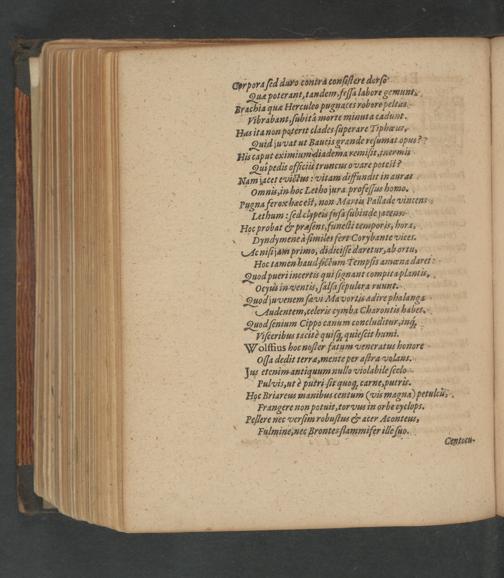 Corpora sed duro contra consistere dorso
Quæ poterant, tandem fessa labore gemunt.
Brachia quæ Herculeo pugnaces robore peltas
Vibrabant, subitâ morte minuta cadunt.
Has ita non poterit clades superare Tiphœus,
Quid juvat ut Baucis grande resumat opus?
His caput eximium diadema remisit, inermis
Qui pedis officiis truncus ovare potest?
Nam jacet evictus: vitam diffundit in auras
Omnis, in hoc Letho jura professus homo.
Pugna ferox hæc est, non Martis Pallade vincens
Lethum: sed clypeis fusa subinde jacens.
Hoc probat & præsens, funesti temporis, hora,
Dyndymenæ similes fert Corybante vices.
Ac nisi jam primo, didicisse daretur, ab ortu,
Hoc tamen haud fictum Tempsis amœna daret:
Quod pueri incertis qui signant compita plantis,
Ocyus inventis, salsa sepulcra ruunt.
Quod juvenem sævi Mavortis adire phalanga
Audentem, celeris cymba Charontis habet.
Quod senium Cippo canum concluditur, inq́,
Visceribus tacitè quisq́, quiescit humi.
Wolffius hoc noster fatum veneratus honore
Ossa dedit terræ, mente per astra volans.
Jus etenim antiquum nullo violabile seclo
Pulvis, ut è putri sit quoq́, carne, putris.
Hoc Briareus manibus centum (vis magna) petulcis,
Frangere non potuit, torvus in orbe cyclops.
Pellere nec versim robustus & acer Aconteus,
Fulmine, nec Brontes flammifer ille suo.
Centocu-